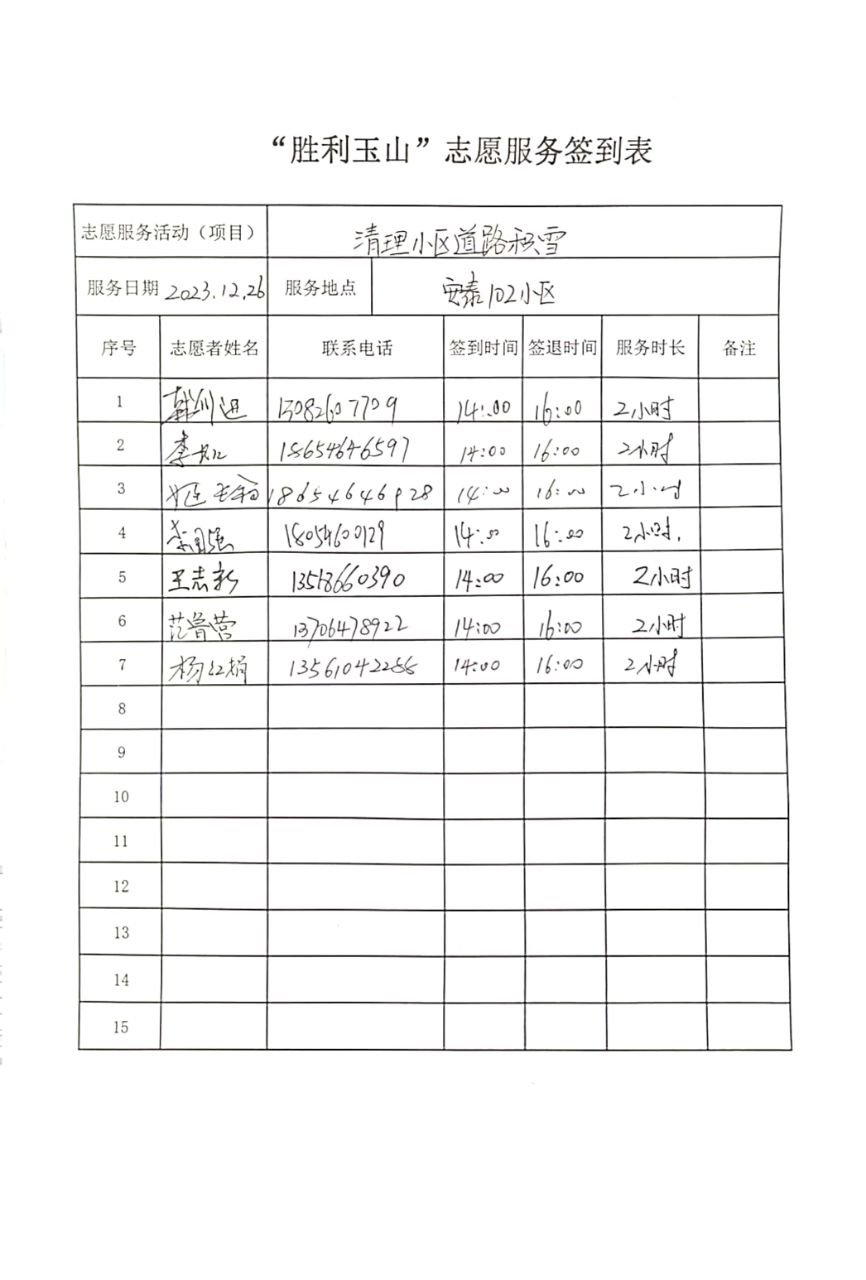 “胜利玉山”志愿服务签到表
志愿服务活动（项目） 清理小区道路积雪
服务日期 2023.12.26 服务地点 安泰102小区
序号 志愿者姓名 联系电话 签到时间 签退时间 服务时长 备注
1 14:00 16:00 2小时
2 李 18654646597 14:00 16:00 2小时
3 18654646928 14:00 16:00 2小时
4 李国强 18054600129 14:00 16:00 2小时.
5 王志新 13518660390 14:00 16:00 2小时
6 范鲁营 13706478922 14:00 16:00 2小时
7 杨红娟 13561042288 14:00 16:00 2小时
8
9
10
11
12
13
14
15